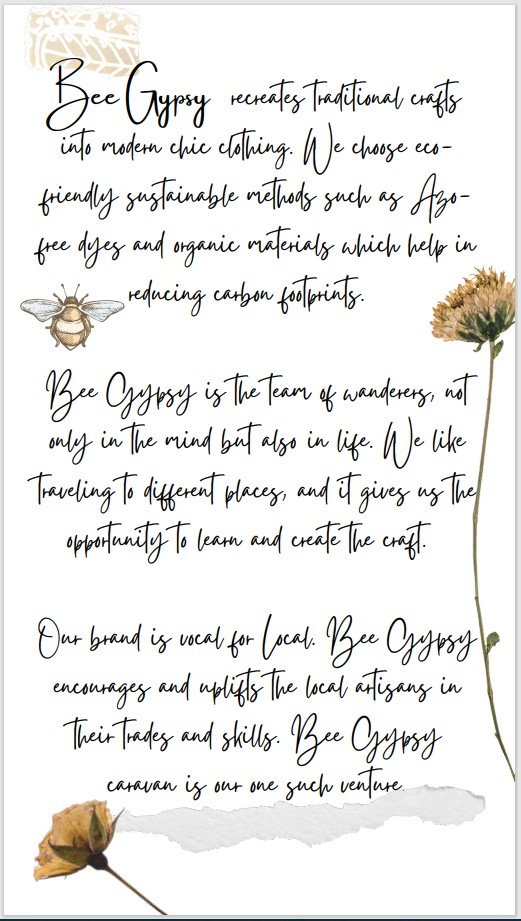 Bee Gypsy recreates traditional crafts
into modern chic clothing. We choose eco-
friendly sustainable methods such as Azo-
free dyes and organic materials which help in
reducing carbon footprints.
Bee Gypsy is the team of wanderers, not
only in the mind but also in life. We like
traveling to different places, and it gives us the
opportunity to learn and create the craft.
Our brand is vocal for Local. Bee Gypsy
encourages and uplifts the local artisans in
their trades and skills. Bee Gypsy
caravan is our one such venture